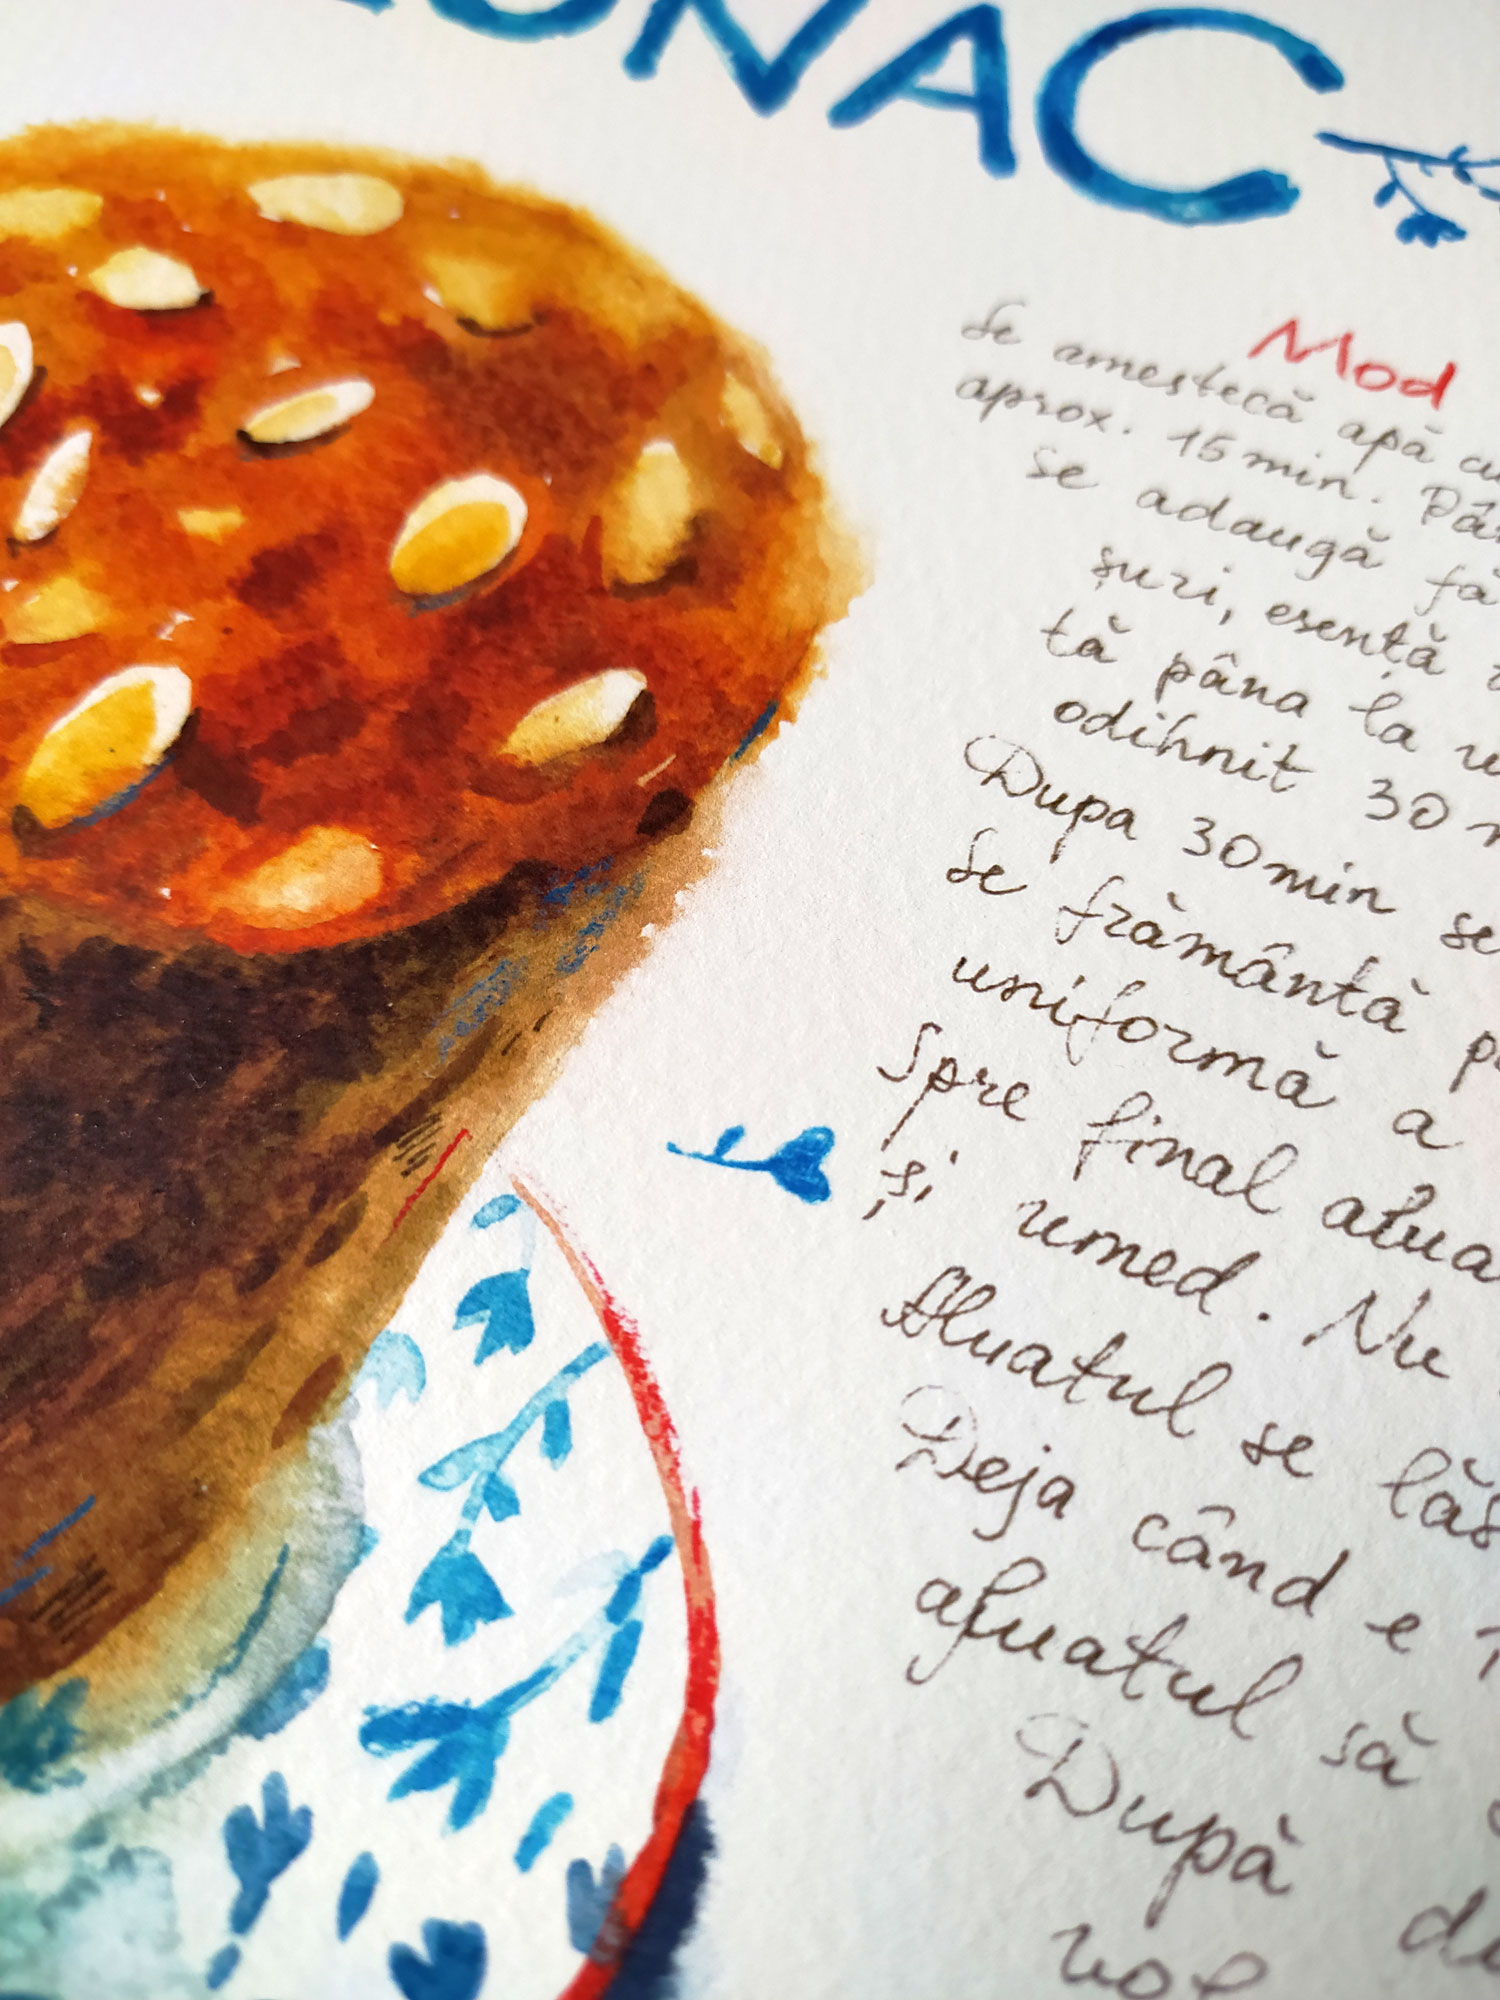 ONAC
Mod
Se amestecă apă cu
aprox. 15 min. Pân
se adaugă fă
șuri, esență
tă pâna la
odihnit 30
Dupa 30 min se
se frământă p
uniformă a
Spre final alua
și umed. Nu
Aluatul se lăs
Deja când e
aluatul să
După d
vol